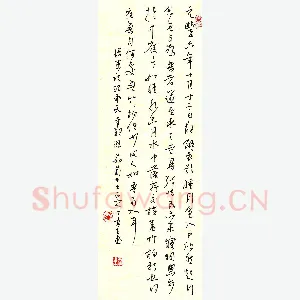 元豐六年十月十二日夜解衣欲睡月色入户欣然起行
念無与為樂者遂至承天寺尋張懷民懷民亦未寢相与步
於中庭庭下如積水空明水中藻荇交横蓋竹柏影也何
夜無月何處無竹柏但少闲人如吾两人耳
Shufawang.CN